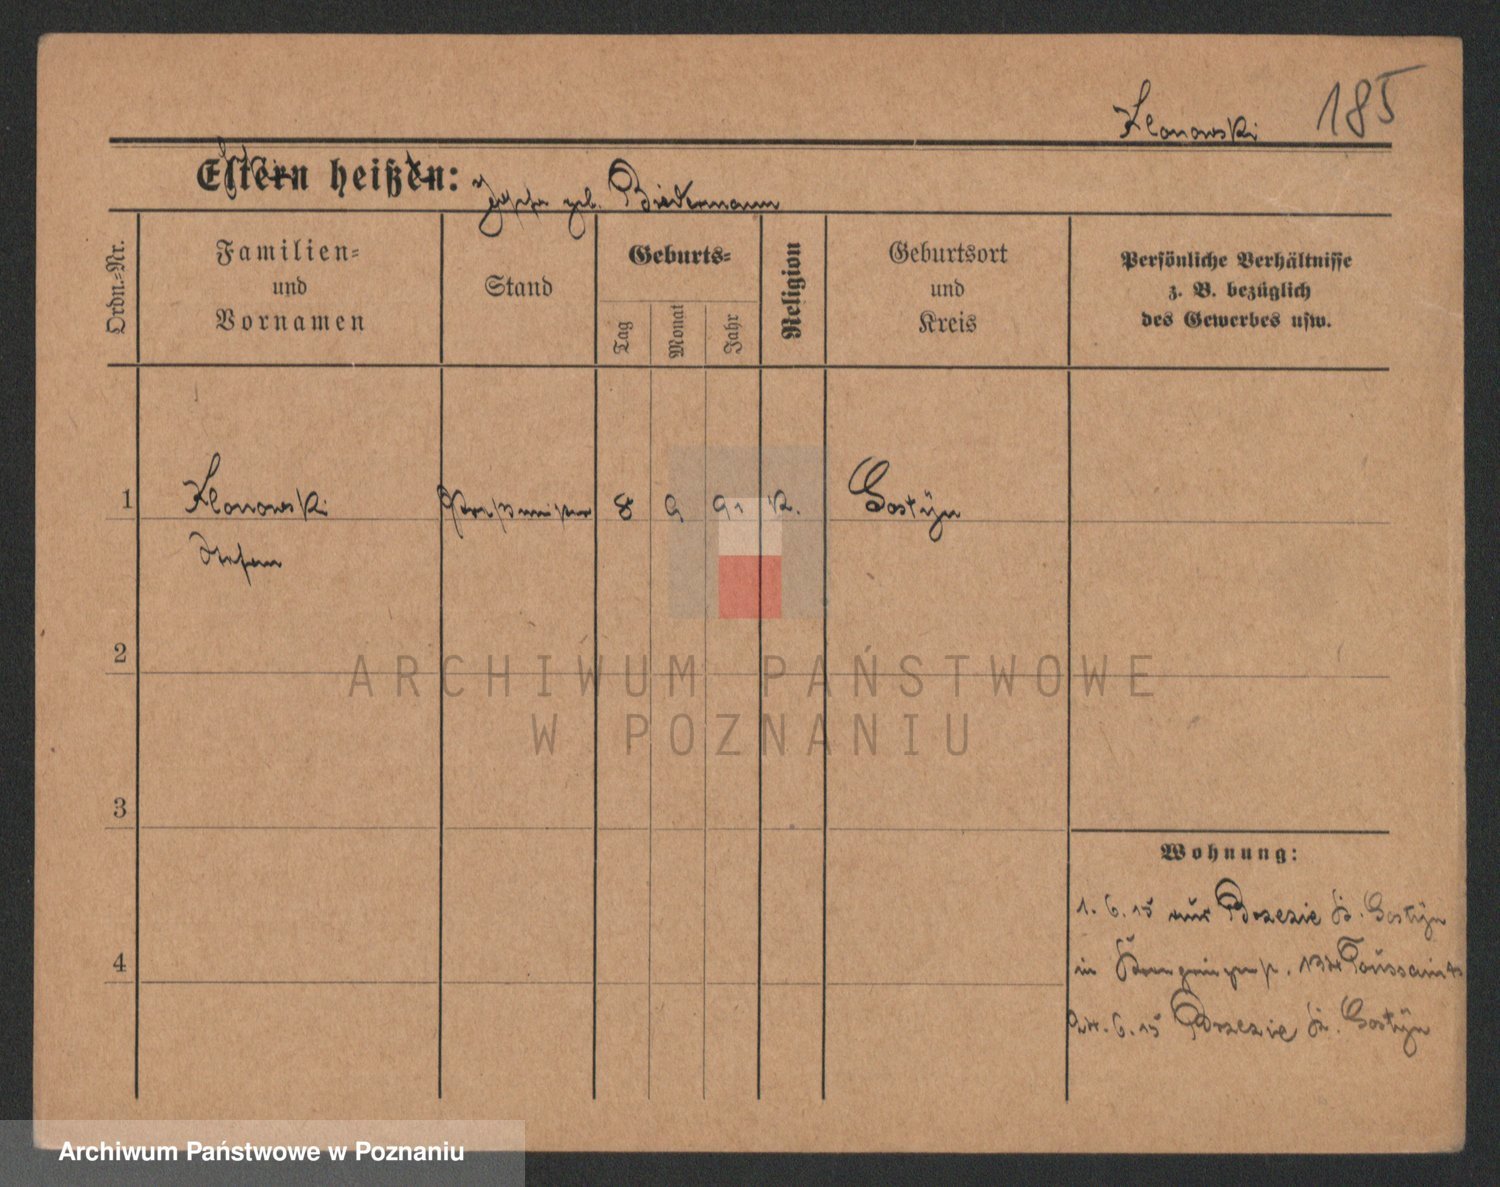 Klonowski 185
Eltern heißen: Josefa geb. Biedermann
Ordn.-Nr.
Familien-
und
Vornamen
Stand
Geburts-
Tag
Monat
Jahr
Religion
Geburtsort
und
Kreis
Persönliche Verhältnisse
z. B. bezüglich
des Gewerbes usw.
1 Klonowski 8 9 91 k. Gostÿn
Stefan
2
3
4
ARCHIWUM PAŃSTWOWE
W POZNANIU
Wohnung:
1. 6. 15 aus Brzezie Kr. Gostÿn
in 13 Toussaint
24. 6. 15 Brzezie Kr. Gostÿn
Archiwum Państwowe w Poznaniu